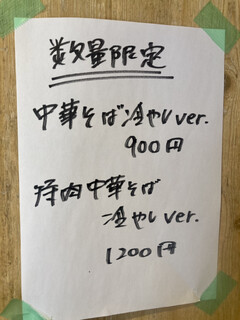 数量限定
中華そば冷やしver.
900円
特肉中華そば
冷やしver.
1200円